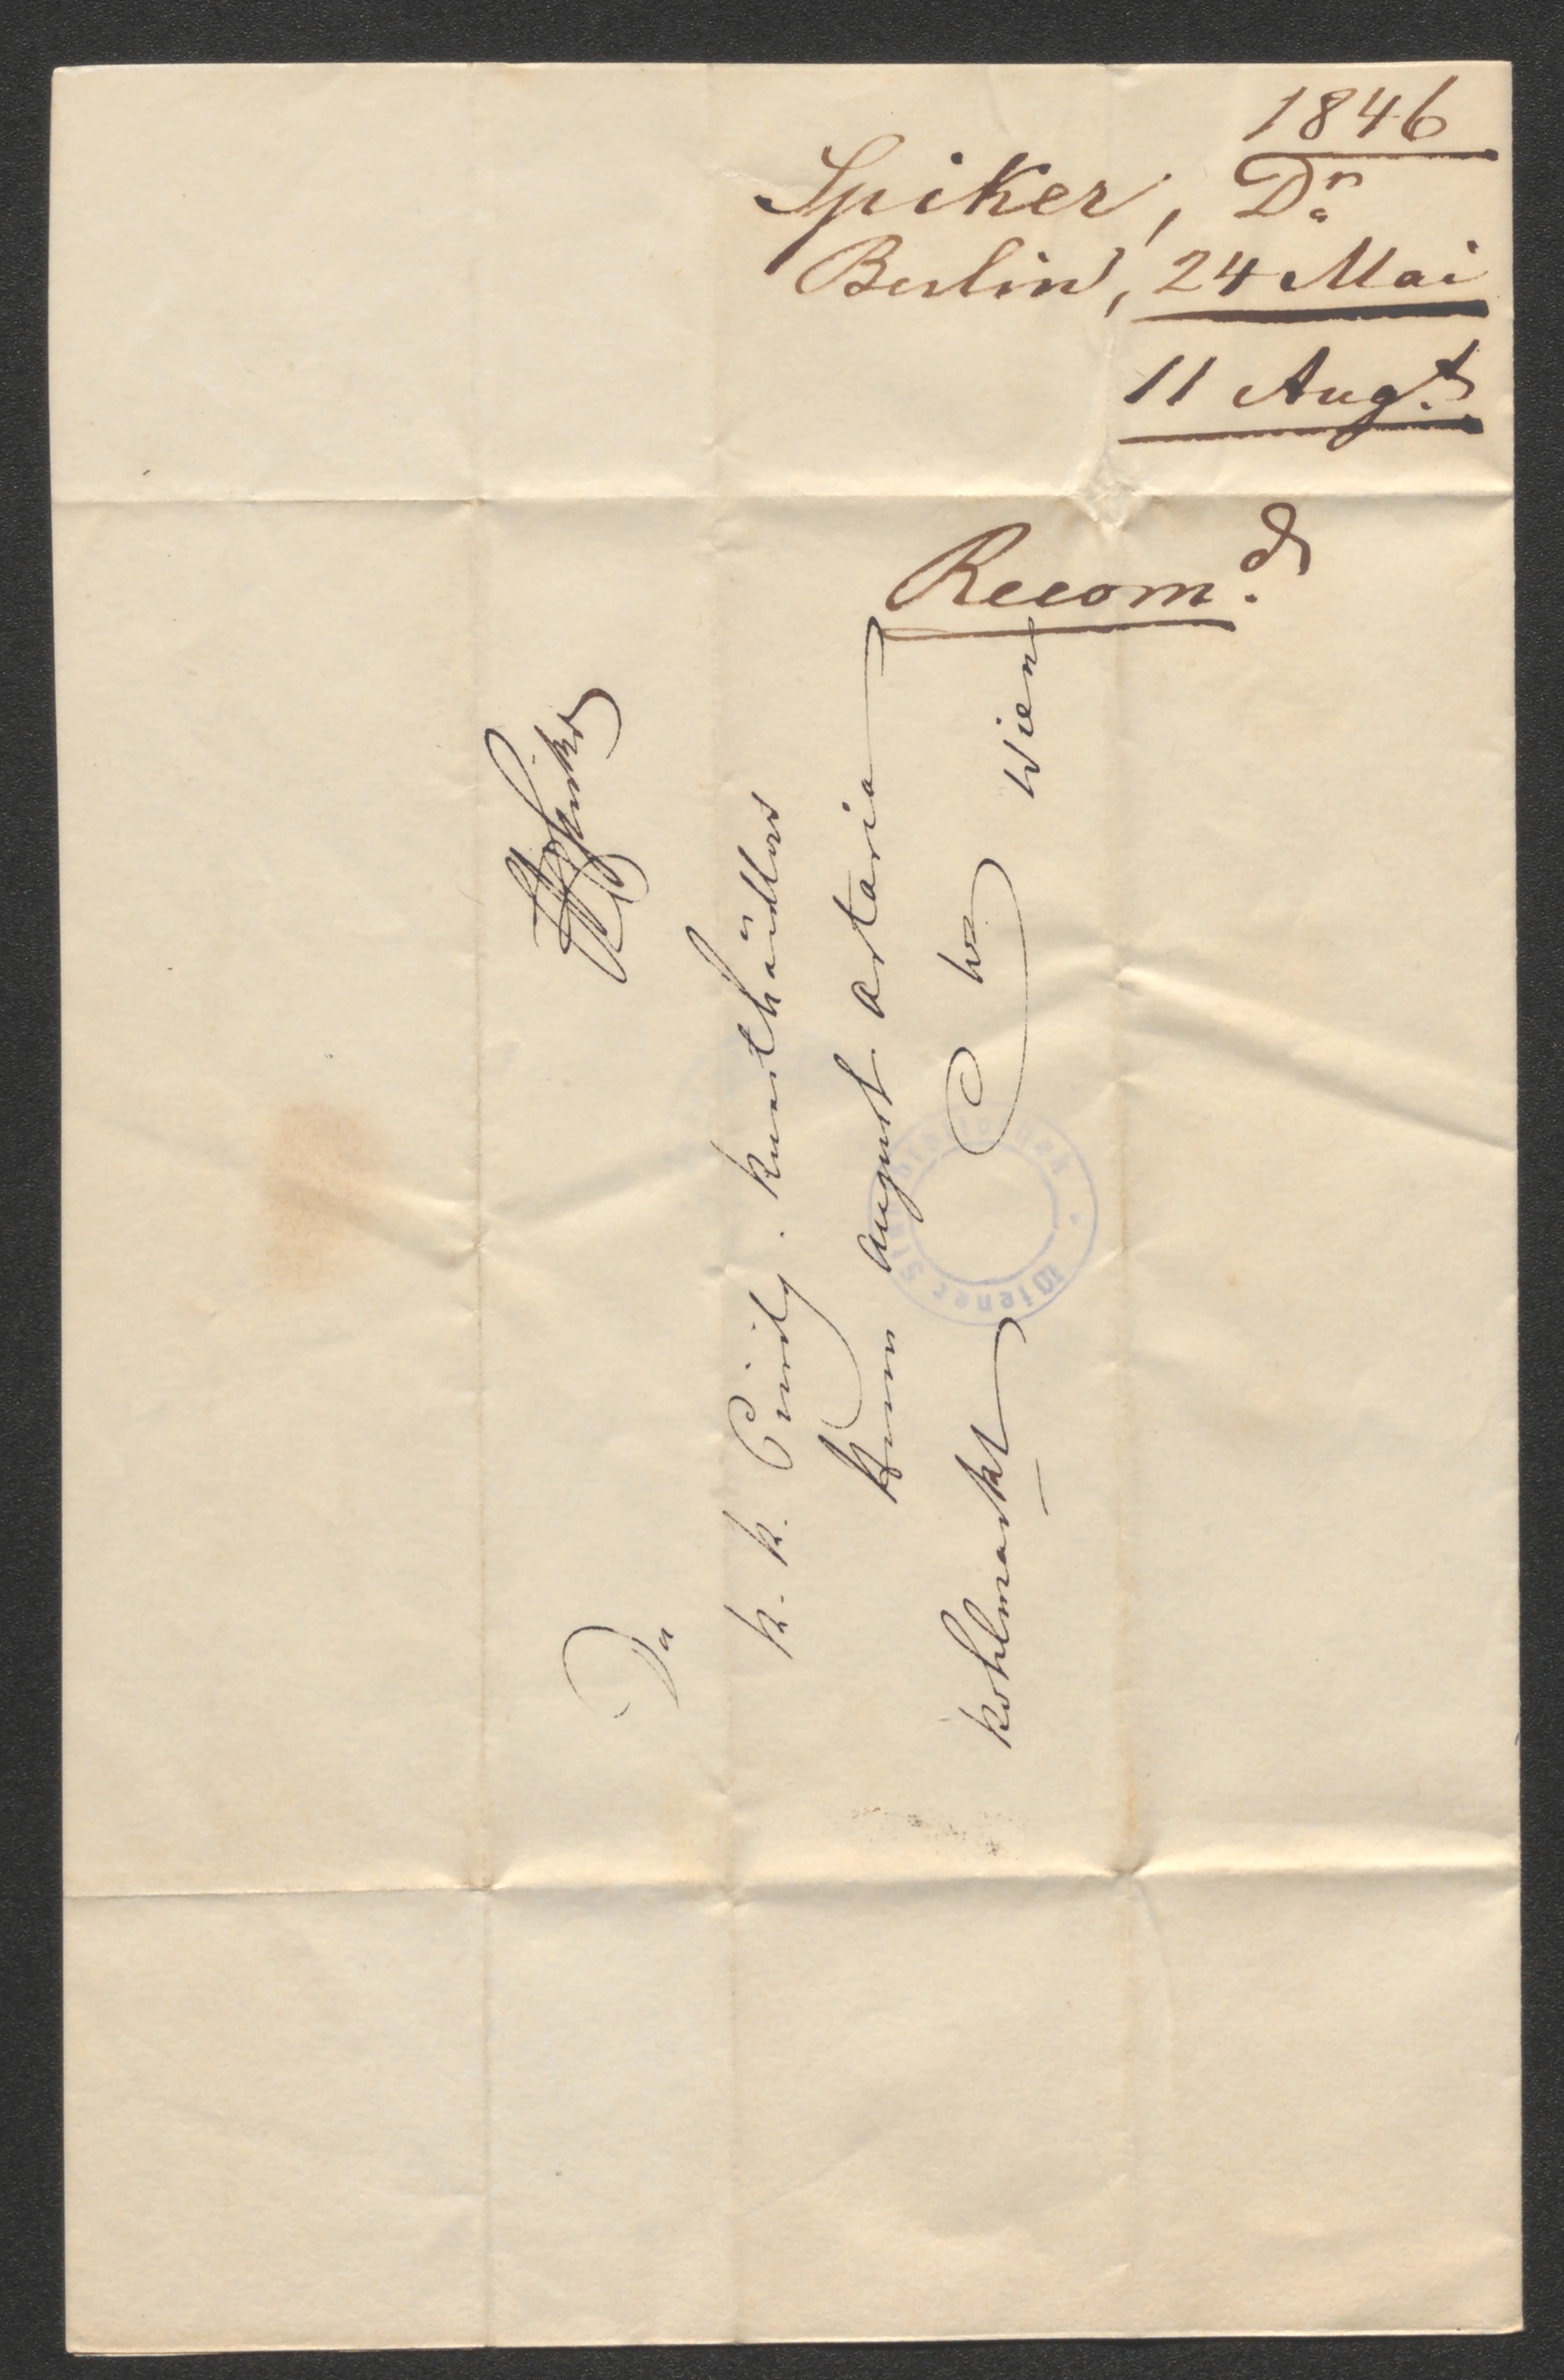 1846
Spiker, Dr.
Berlin, 24 Mai
11 Augt.
Recomd.
Spiker
K. K. Privileg. Kunsthändler
Herrn August Artaria
Kohlmarkt Wien
Wiener Stadtbibliothek